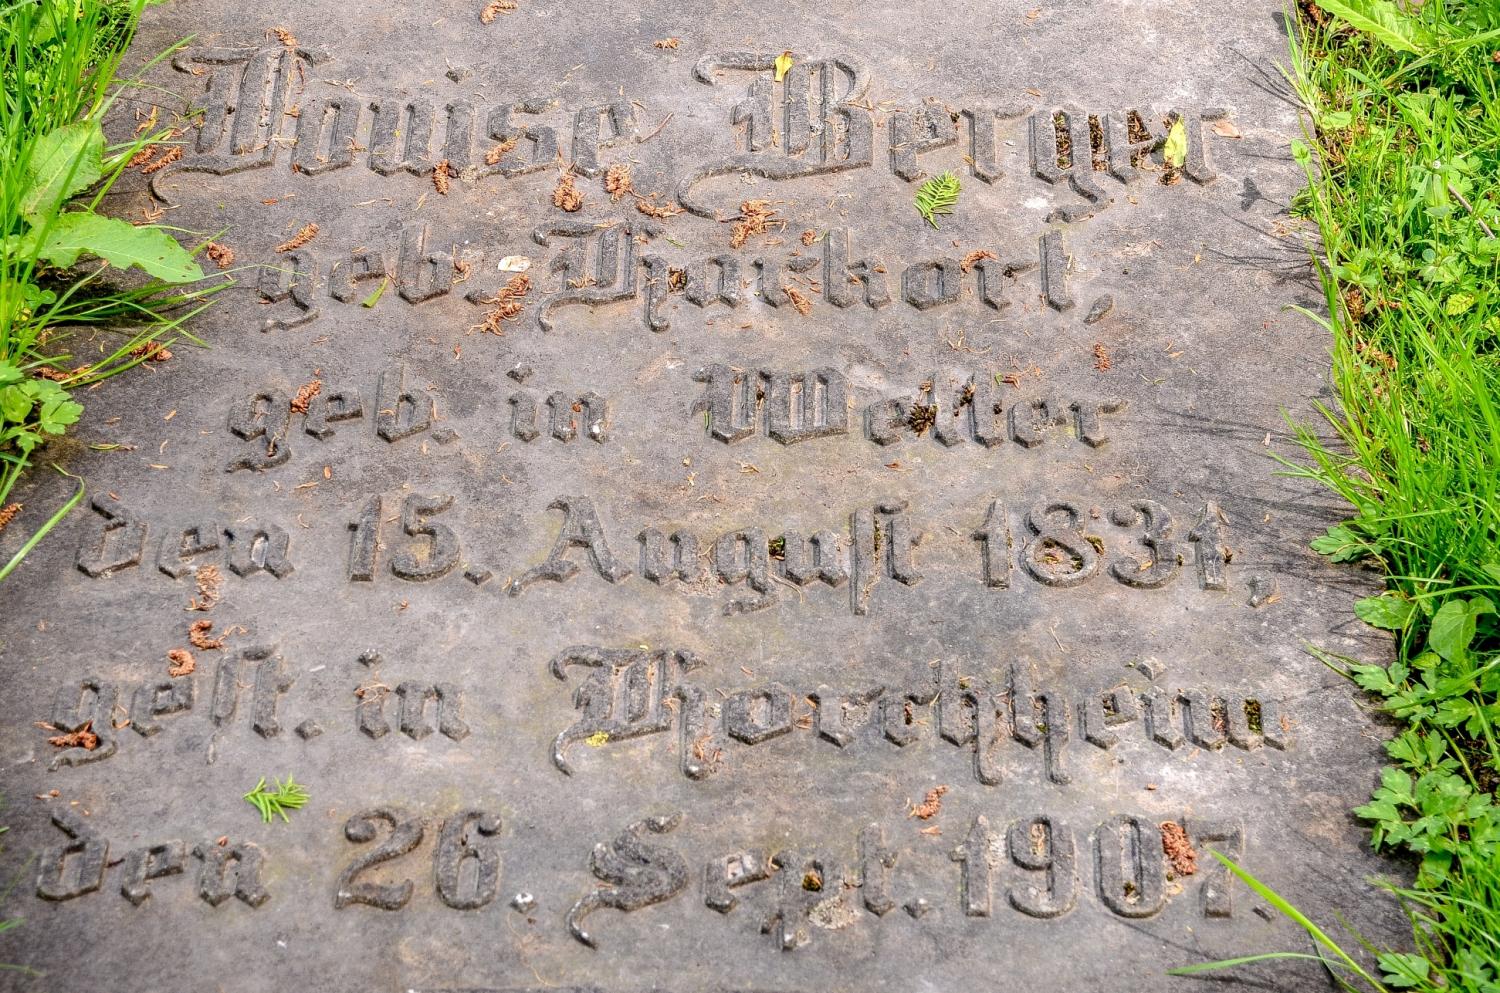 Louise Berger,
geb. Harkort,
geb. in Wetter
den 15. August 1831,
gest. in Horchheim
den 26. Sept. 1907.